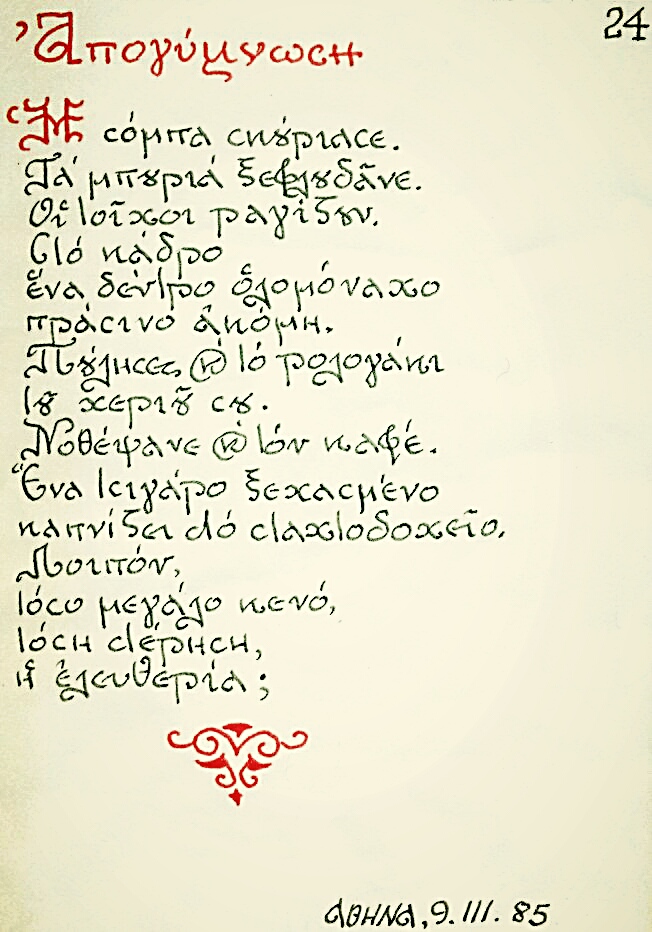 Ἀπογύμνωση
24
Ἡ σόμπα σκούριασε.
Τά μπουριά ξεφλουδᾶνε.
Οἱ τοῖχοι ραγίζουν.
Στό κάδρο
ἕνα δέντρο ὁλομόναχο
πράσινο ἀκόμη.
Πούλησες καί τό ρολογάκι
τοῦ χεριοῦ σου.
Νοθέψανε καί τόν καφέ.
Ἕνα τσιγάρο ξεχασμένο
καπνίζει στό σταχτοδοχεῖο.
Λοιπόν,
τόσο μεγάλο κενό,
τόση στέρηση,
ἡ ἐλευθερία;
ΑΘΗΝΑ, 9. III. 85